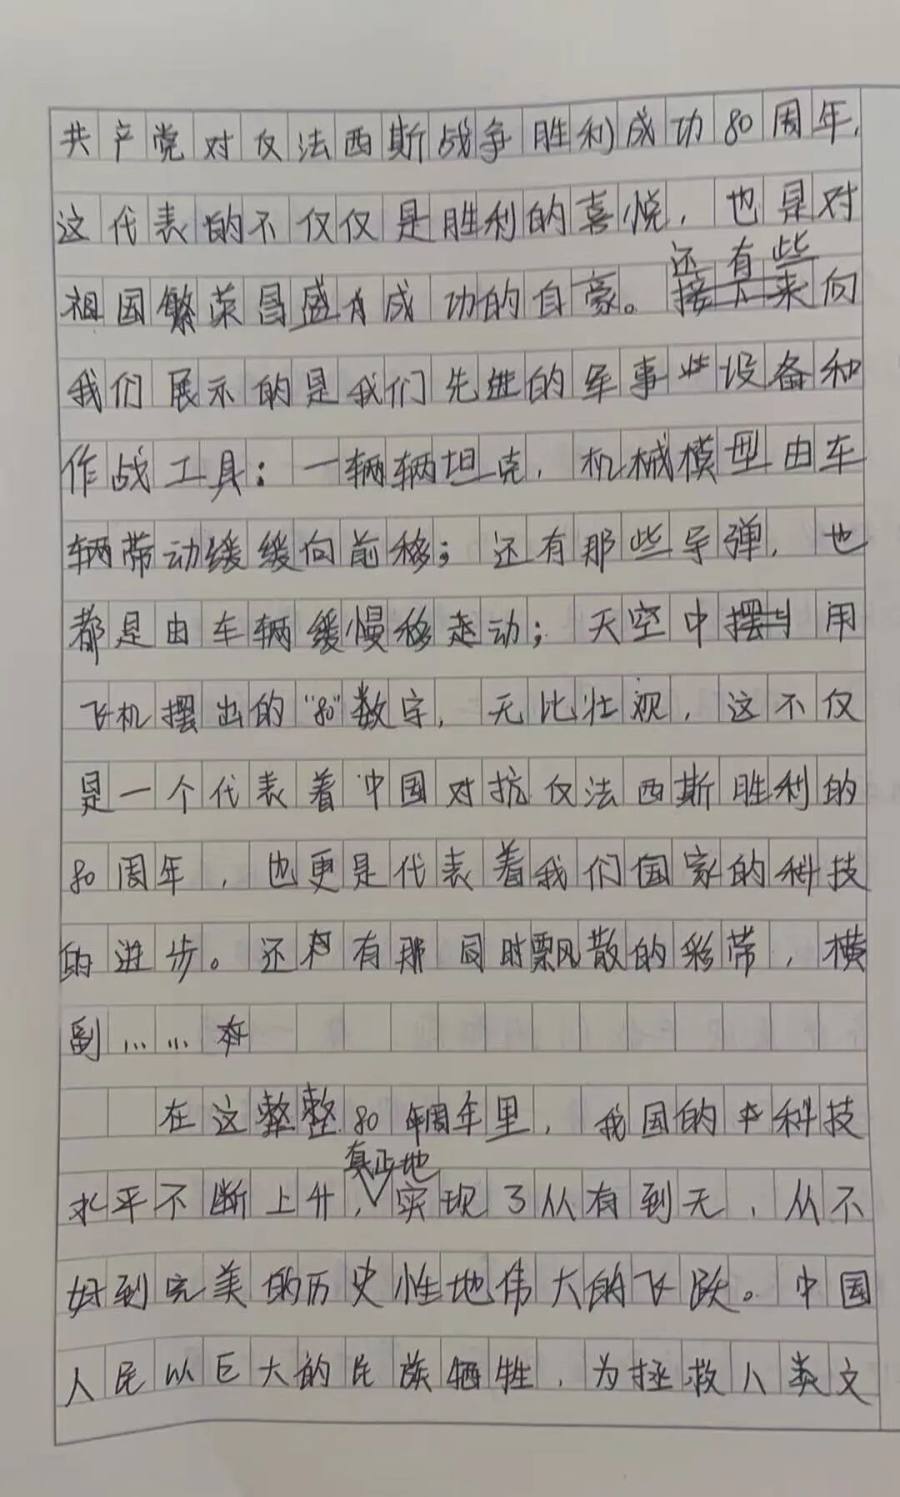 共产党对反法西斯战争胜利成功80周年，
这代表的不仅仅是胜利的喜悦，也是对
还有些
祖国繁荣昌盛有成功的自豪。接下来向
我们展示的是我们先进的军事些设备和
作战工具：一辆辆坦克，机械模型由车
辆带动缓缓向前移；还有那些导弹，也
都是由车辆缓慢移走动；天空中摆用
飞机摆出的“80”数字，无比壮观，这不仅
是一个代表着中国对抗反法西斯胜利的
80周年，也更是代表着我们国家的科技
的进步。还有那同时飘散的彩带，横
副……
在这整整80周年里，我国的科技
真正地
水平不断上升，实现了从有到无，从不
好到完美的历史性地伟大的飞跃。中国
人民以巨大的民族牺牲，为拯救人类文